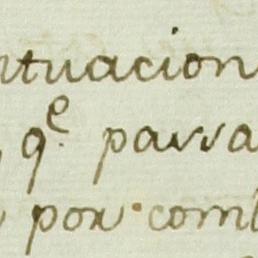 ntuacion
q.e parra
por comb